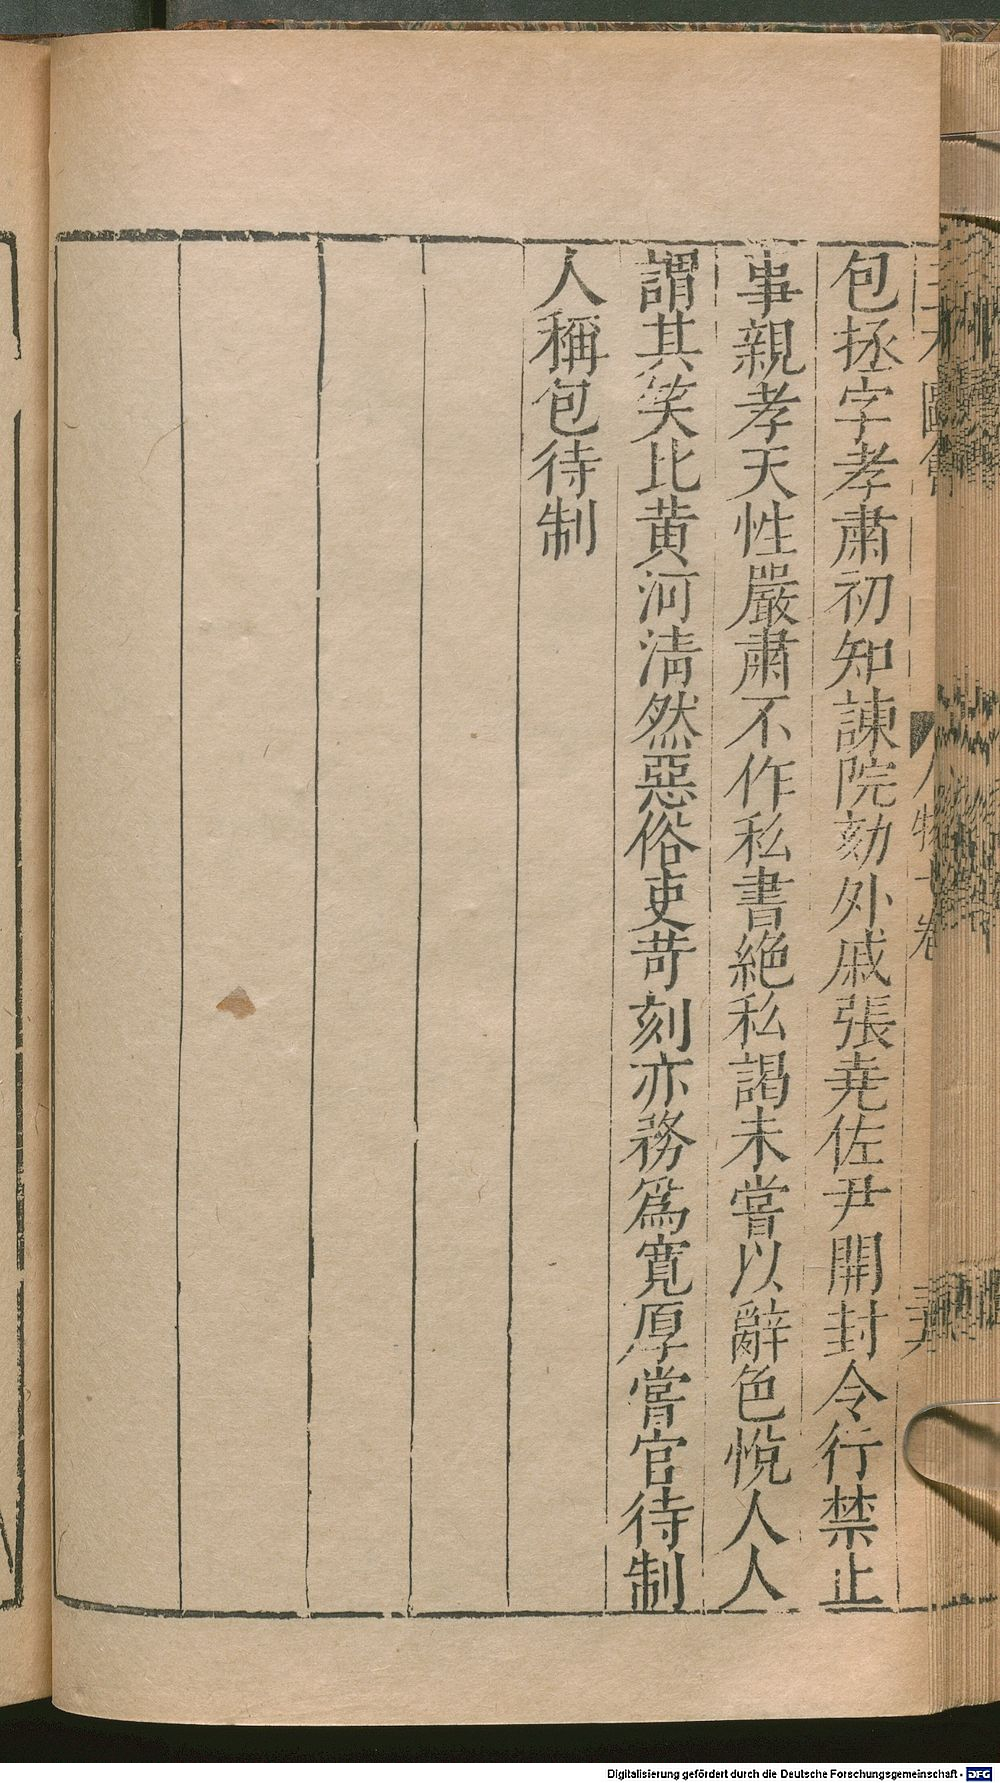 包拯字孝肅初知諫院劾外戚張堯佐尹開封令行禁止
事親孝天性嚴肅不作私書絶私謁未嘗以辭色悅人人
謂其笑比黄河淸然惡俗吏苛刻亦務爲寬厚嘗官待制
人稱包待制
Digitalisierung gefördert durch die Deutsche Forschungsgemeinschaft - DFG